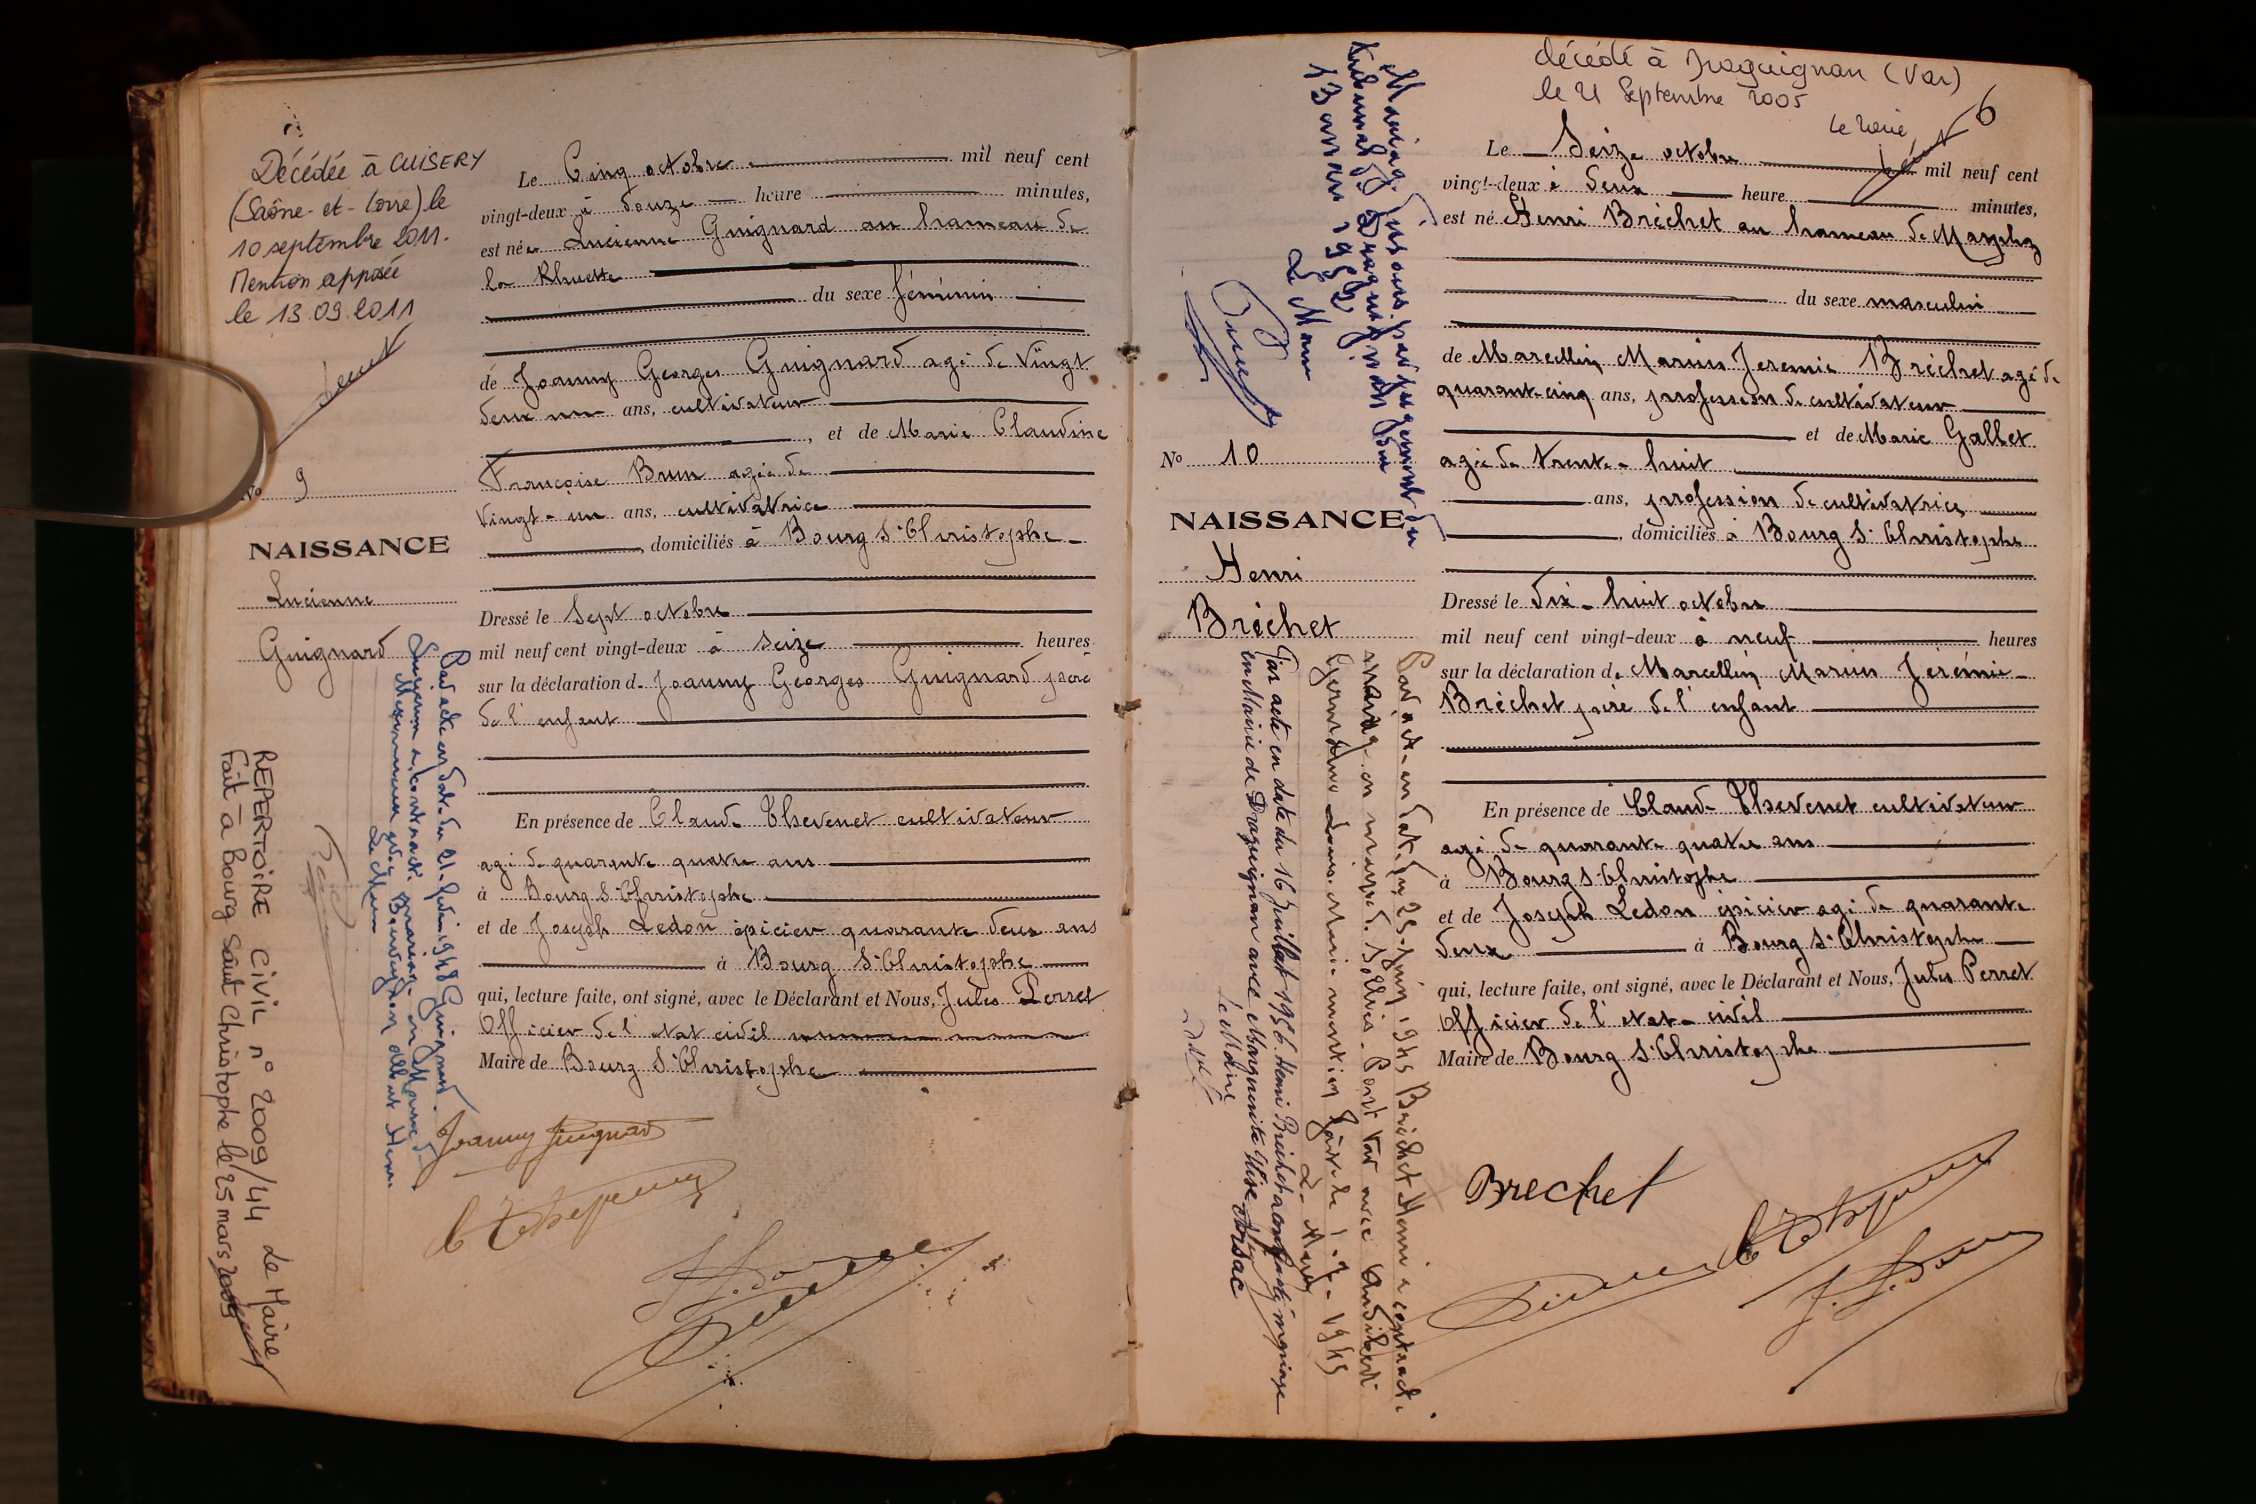 Décédée à CUISERY
(Saône-et-Loire) le
10 septembre 2011.
Mention apposée
le 13.09.2011
No 9
NAISSANCE
Lucienne
Guignard
Le Cinq octobre mil neuf cent
vingt-deux à douze heure minutes,
est née Lucienne Guignard au hameau de
la Rhuette
du sexe féminin
de Joanny Georges Guignard agé de Vingt
deux ans, cultivateur
, et de Marie Claudine
Françoise Brun agée de
Vingt-un ans, cultivatrice
, domiciliés à Bourg St Christophe
Dressé le Sept octobre
mil neuf cent vingt-deux à seize heures
sur la déclaration de Joanny Georges Guignard père
de l'enfant
En présence de Claude Thevenet cultivateur
agé de quarante quatre ans
à Bourg St Christophe
et de Joseph Ledon épicier quarante deux ans
à Bourg St Christophe
qui, lecture faite, ont signé, avec le Déclarant et Nous, Jules Perret
Officier de l'etat civil
Maire de Bourg St Christophe
Joanny Guignard
Par acte en date du 21 1948 Guignard
Lucienne a contracté mariage en Mairie de
Meximieux avec Albert Henri
Le Maire
REPERTOIRE CIVIL n° 2009/44 Le Maire
Fait à Bourg Saint Christophe le 25 mars 2009
décédé à Draguignan (Var)
le 21 Septembre 2005
Le Maire
6
Mariage dissous par jugement du
tribunal de Draguignan du
13 1952
Le Maire
No 10
NAISSANCE
Henri
Bréchet
Le Seize octobre mil neuf cent
vingt-deux à deux heure minutes,
est né Henri Bréchet au hameau de Marfoz
du sexe masculin
de Marcellin Marius Jeremie Bréchet agé de
quarante-cinq ans, profession de cultivateur
et de Marie Gallet
agée de trente-huit
ans, profession de cultivatrice
, domiciliés à Bourg St Christophe
Dressé le Dix-huit octobre
mil neuf cent vingt-deux à neuf heures
sur la déclaration de Marcellin Marius Jérémie
Bréchet père de l'enfant
En présence de Claude Thevenet cultivateur
agé de quarante quatre ans
à Bourg St Christophe
et de Joseph Ledon épicier agé de quarante
deux à Bourg St Christophe
qui, lecture faite, ont signé, avec le Déclarant et Nous, Jules Perret
Officier de l'etat-civil
Maire de Bourg St Christophe
Brechet
Par acte en date du 25 Juin 1945 Bréchet Henri a contracté
mariage en mairie de Solliès-Pont Var avec Audibert
Germaine Louise Marie mention faite le 1-7-1945
Le Maire
Par acte en date du 16 Juillet 1956 Henri Bréchet a contracté mariage
en Mairie de Draguignan avec Marguerite
Le Maire